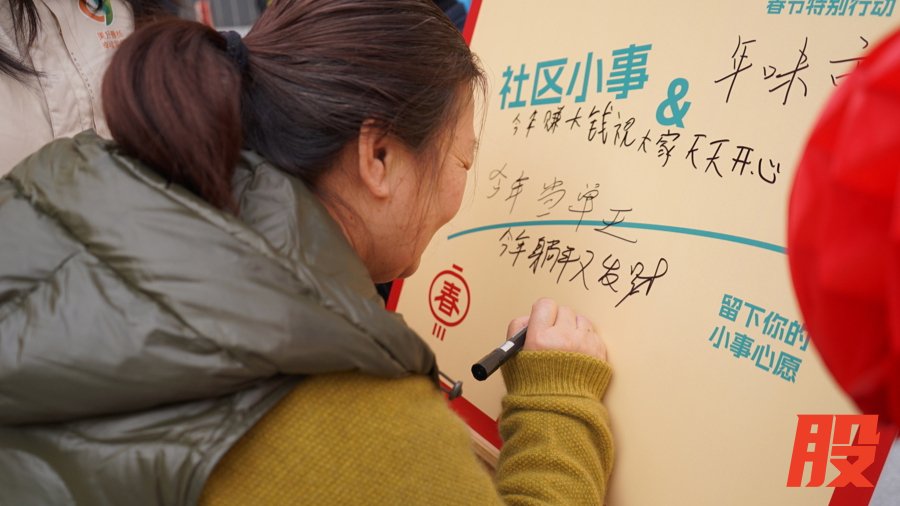 春节特别行动
年味
社区小事
&
今年赚大钱祝大家天天开心
今年当单王
今年躺平又发财
春
留下你的
小事心愿
股